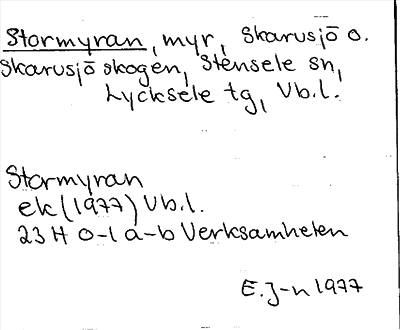 Stormyran, myr, Skarusjö o.
Skarusjö skogen, Stensele sn,
Lycksele tg, Vb.l.
Stormyran
ek (1977) Vb.l.
23 H 0-1 a-b Verksamheten
E. J-n 1977